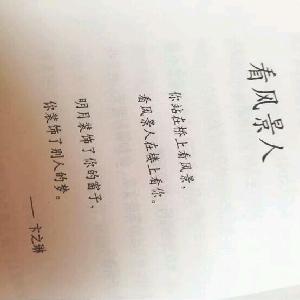 看风景人
你站在桥上看风景，
看风景人在楼上看你。
明月装饰了你的窗子，
你装饰了别人的梦。
——卞之琳